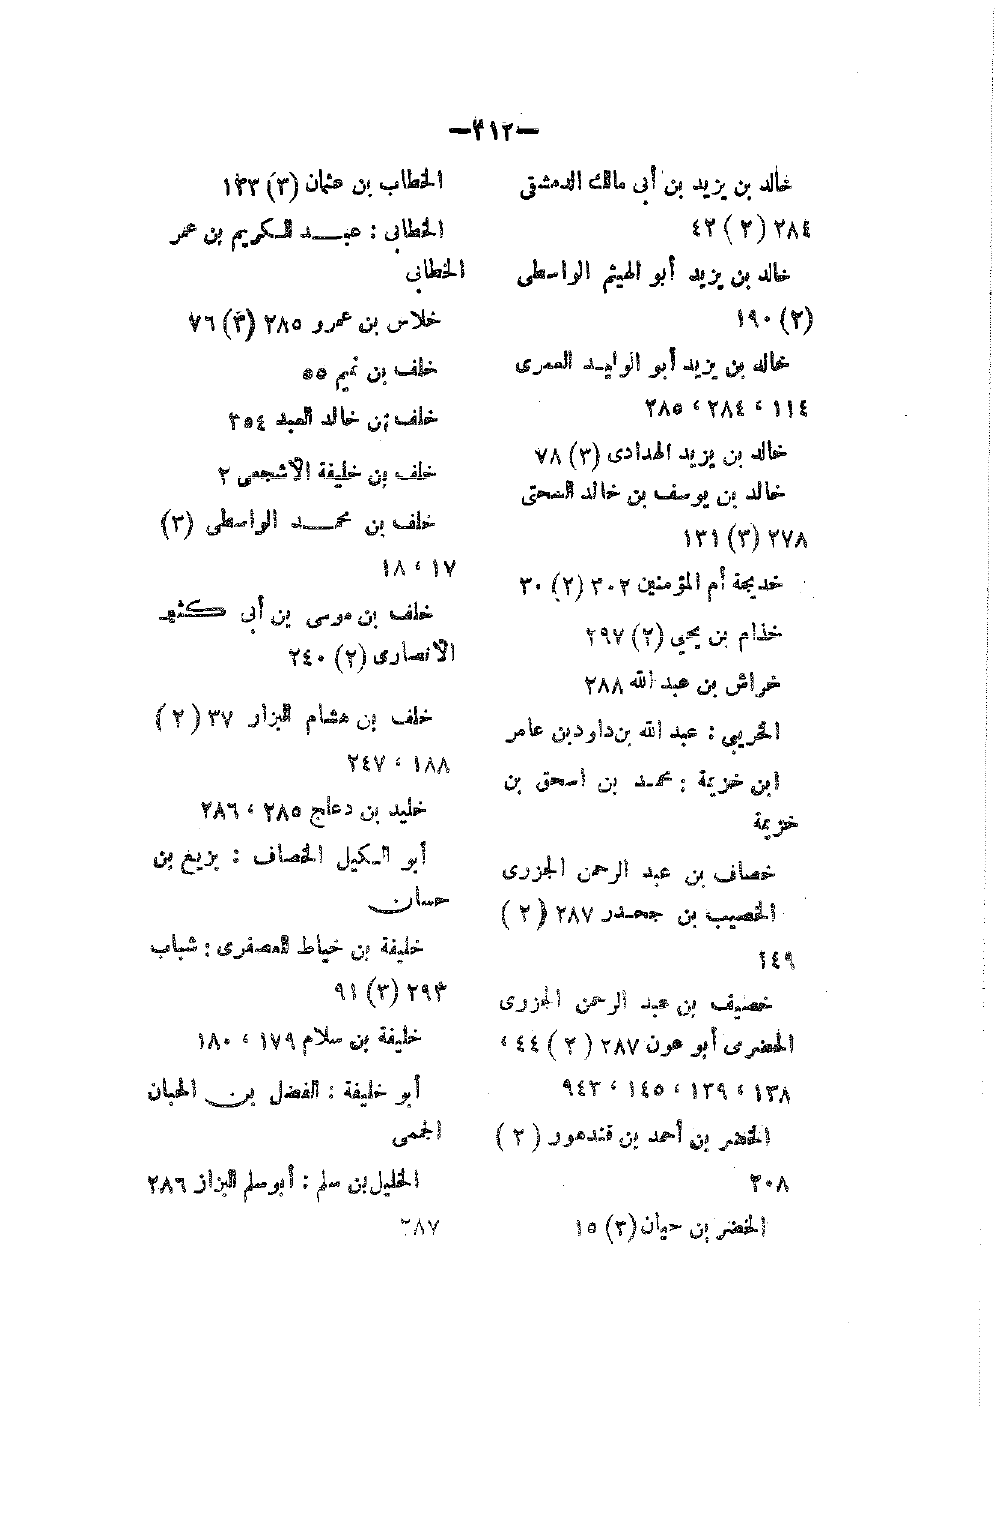 —٣١٢—
خالد بن يزيد بن أبى مالك الدمشقى
٢٨٤ (٢) ٤٢
خالد بن يزيد أبو الهيثم الواسطى
(٢) ١٩٠
خالد بن يزيد أبو الوليد العمرى
١١٤ ، ٢٨٤ ، ٢٨٥
خالد بن يزيد الهدادى (٣) ٧٨
خالد بن يوسف بن خالد السمتى
٢٧٨ (٣) ١٣١
خديجة أم المؤمنين ٣٠٢ (٢) ٣٠
خذام بن يحيى (٢) ٢٩٧
خراش بن عبد الله ٢٨٨
الخريبى : عبد الله بن داود بن عامر
ابن خزيمة : محمد بن اسحق بن
خزيمة
خصاف بن عبد الرحمن الجزرى
الخصيب بن جحدر ٢٨٧ (٢)
١٤٩
خصيف بن عبد الرحمن الجزرى
الخضرى أبو عون ٢٨٧ (٢) ٤٤ ،
١٣٨ ، ١٣٩ ، ١٤٥ ، ٩٤٣
الخضر بن أحمد بن قندهور (٢)
٣٠٨
الخضر بن حيان (٣) ١٥
الخطاب بن عثمان (٣) ١٣٣
الخطابى : عبد الكريم بن عمر
الخطابى
خلاس بن عمرو ٢٨٥ (٣) ٧٦
خلف بن تميم ٥٥
خلف بن خالد العبد ٢٥٤
خلف بن خليفة الأشجعى ٢
خلف بن محمد الواسطى (٣)
١٧ ، ١٨
خلف بن موسى بن أبى
الانصارى (٢) ٢٤٠
خلف بن هشام البزار ٣٧ (٢)
١٨٨ ، ٢٤٧
خليد بن دعلج ٢٨٥ ، ٢٨٦
أبو الكيل الخصاف : بزيغ بن
حسان
خليفة بن خياط العصفرى : شباب
٢٩٣ (٣) ٩١
خليفة بن سلام ١٧٩ ، ١٨٠
أبو خليفة : الفضل بن الحبان
الجمى
الخليل بن سلم : أبو سلم البزاز ٢٨٦
٢٨٧